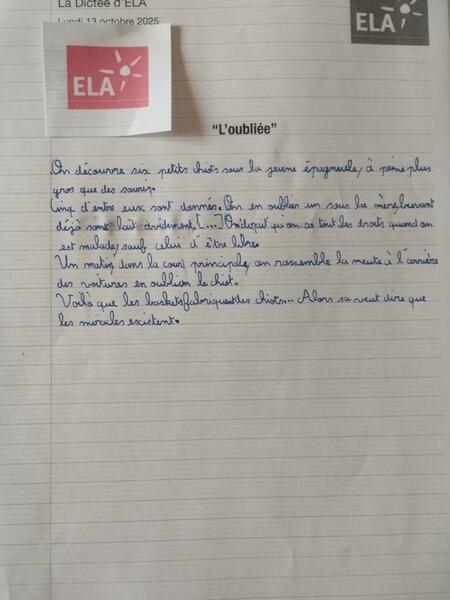 La Dictée d'ELA
Lundi 13 octobre 2025
ELA
ELA
"L'oubliée"
On découvre six petits chiots sous la jeune épagneulle, à peine plus
gros que des souris.
Cinq d'entre eux sont donnés. On en oublier un sous la mère, buvant
déjà sont lait avidement, [...] On dirait qu'on a tout les droits quand on
est malade, sauf celui d'être libre.
Un matin, dans la cour principale, on rassemble la meute à l'arrière
des voitures en oublion le chiot.
Voilà que les baskets fabriquent des chiots... Alors sa veut dire que
les miracles existent.